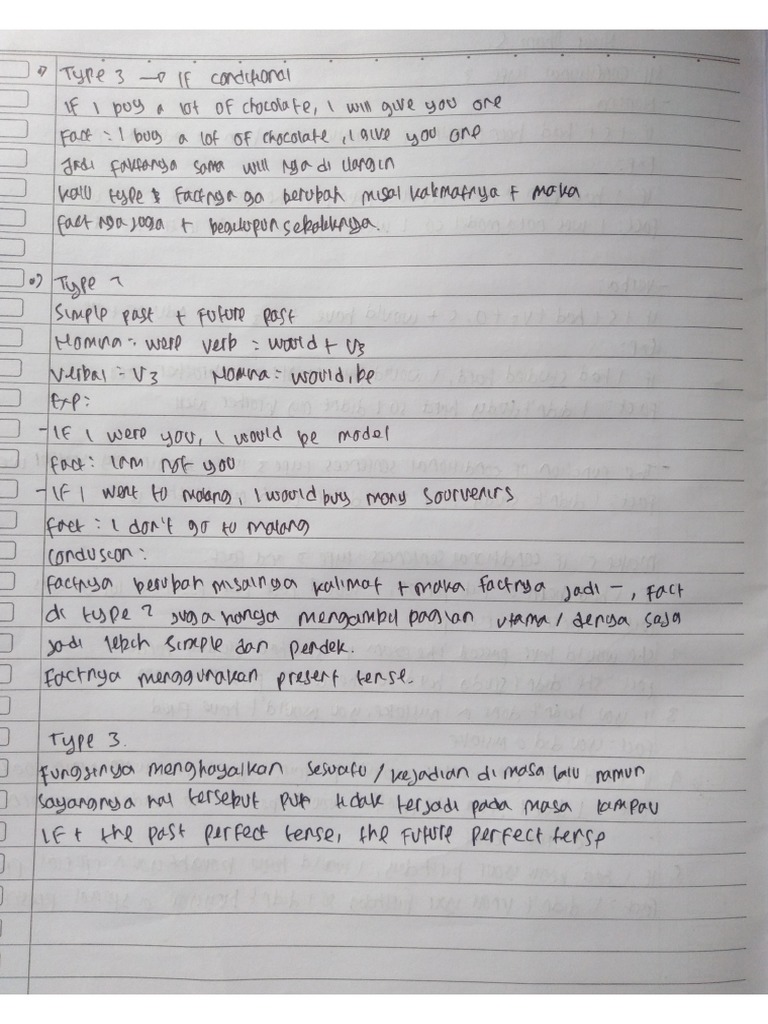 Type 3 → IF conditional
IF I buy a lot of chocolate, I will give you one
Fact : I buy a lot of chocolate, I give you one
Jadi faktanya sama will nya di ilangin
kalu type Factnya ga berubah misal kalimatnya + maka
fact nya juga + begitupun sebaliknya.
Type 2
Simple past + Future past
Nomina = were verb = would + V3
Verbal = V3 Nomina = would, be
Exp :
- IF I were you, I would be model
fact : I am not you
- IF I went to malang, I would buy many sourvenirs
fact : I don't go to malang
Conduscon :
factnya berubah misalnya kalimat + maka factnya jadi -, fact
di type 2 juga hanya mengambil bagian utama / denya saja
jadi lebih simple dan pendek.
Factnya menggunakan present tense.
Type 3.
Fungsinya menghayalkan sesuatu / kejadian di masa lalu namun
sayangnya hal tersebut pun tidak terjadi pada masa lampau
IF + the past perfect tense, the Future perfect tense